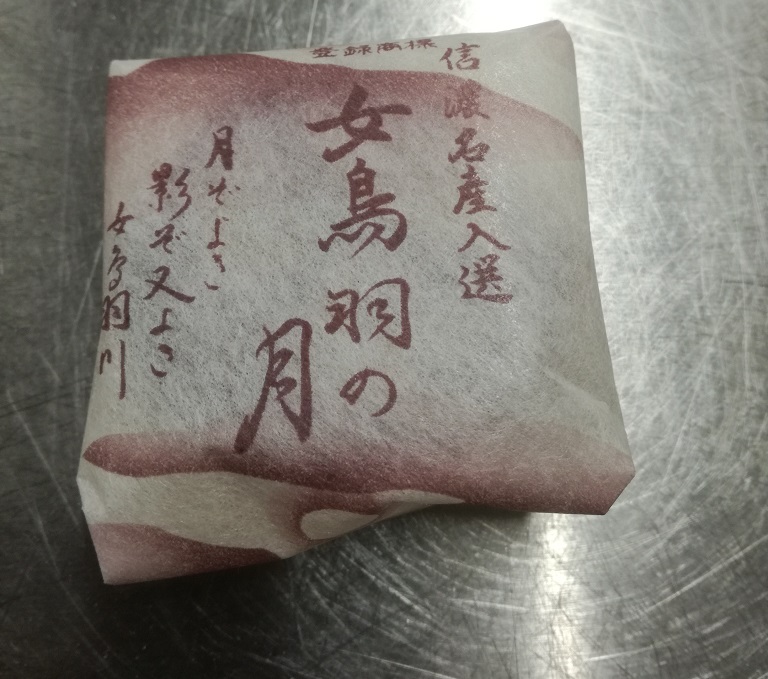 登録商標
信濃名産入選
女鳥羽の
月
月ぞよき
影ぞ又よき
女鳥羽川